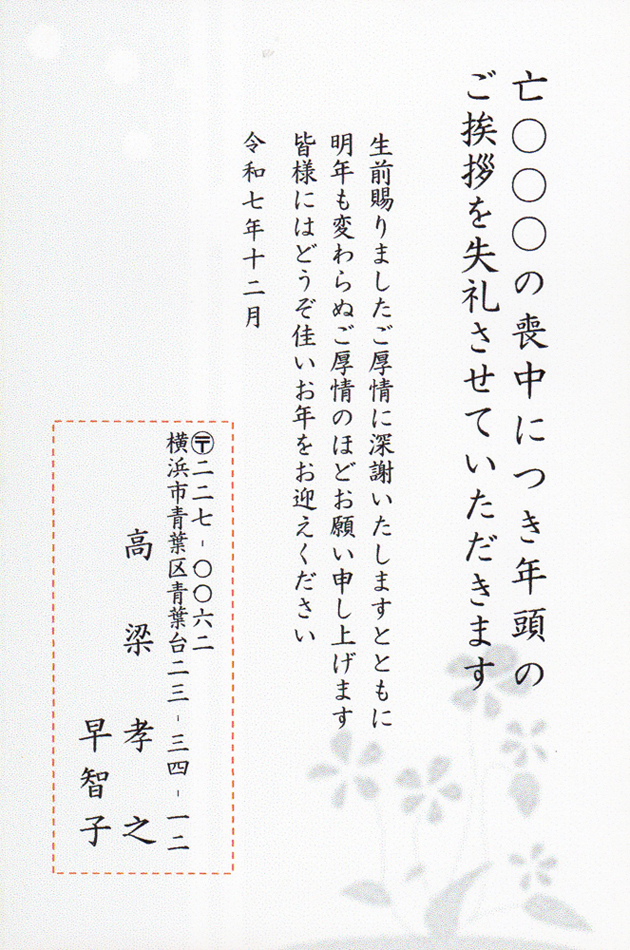 亡〇〇〇の喪中につき年頭の
ご挨拶を失礼させていただきます
生前賜りましたご厚情に深謝いたしますとともに
明年も変わらぬご厚情のほどお願い申し上げます
皆様にはどうぞ佳いお年をお迎えください
令和七年十二月
〒二二七-〇〇六二
横浜市青葉区青葉台二三-三四-一二
高梁 孝之
早智子